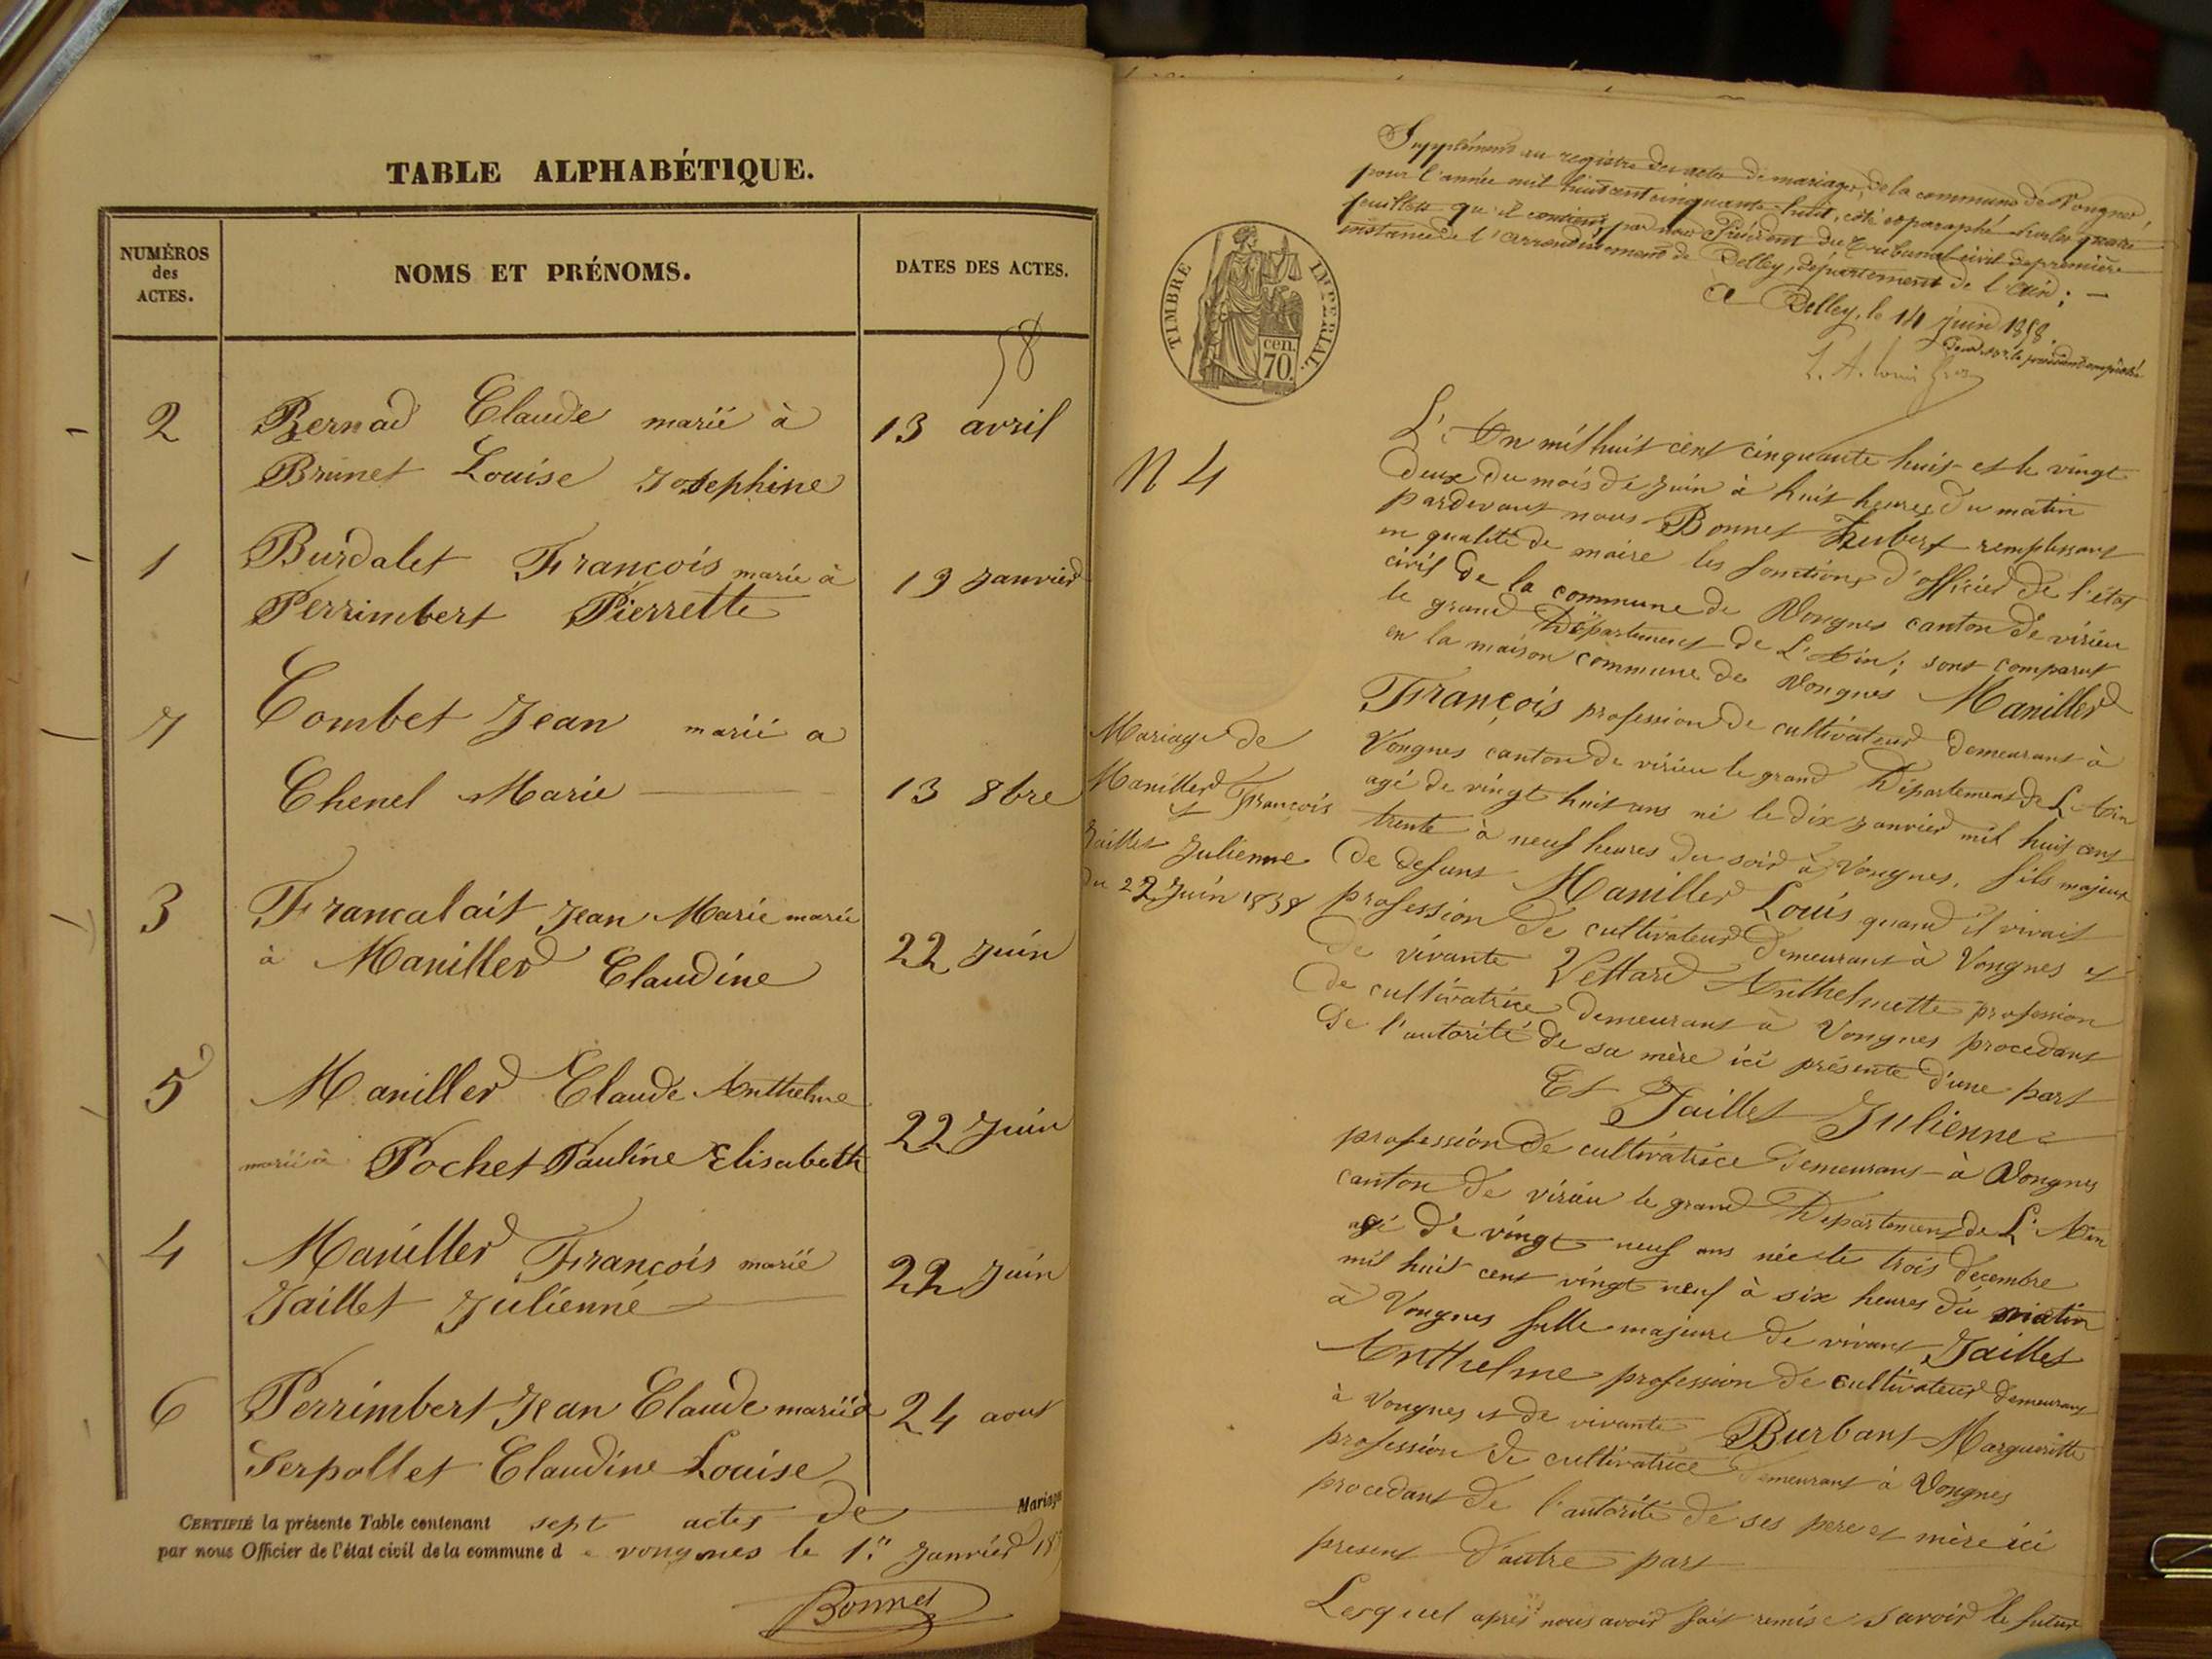 TABLE ALPHABÉTIQUE.
NUMÉROS des ACTES.
NOMS ET PRÉNOMS.
DATES DES ACTES.
58
2 Bernad Claude marié à 13 avril
Brunet Louise Josephine
1 Burdalet François marié à 19 Janvier
Perrimbert Pierrette
7 Combet Jean marié a
Chenel Marie 13 8bre
3 Francalait Jean Marie marié
à Maniller Claudine 22 Juin
5 Maniller Claude Anthelme 22 Juin
marié à Pochet Pauline Elisabeth
4 Maniller François marié 22 Juin
Jaillet Julienne
6 Perrimbert Jean Claude marié à 24 aout
Serpollet Claudine Louise
CERTIFIÉ la présente Table contenant sept actes de Mariage
par nous Officier de l'état civil de la commune de vongnes le 1er Janvier 18
Bonnet
Supplément au registre des actes de mariages, de la commune de Vongnes,
pour l'année mil huit cent cinquante-huit, côté et paraphé sur les quatre
feuillets qu'il contient, par nous Président du Tribunal civil de première
instance de l'arrondissement de Belley, département de l'Ain; —
à Belley, le 14 juin 1858.
Pour le président empêché
TIMBRE IMPERIAL.
70 cen.
N 4
L'An mil huit cent cinquante huit et le vingt
deux du mois de juin à huit heures du matin
pardevant nous Bonnet Hubert remplissant
en qualité de maire les fonctions d'officier de l'état
civil de la commune de Vongnes canton de virieu
le grand Département de L'Ain; sont comparut
en la maison commune de Vongnes Maniller
François profession de cultivateur demeurant à
Vongnes canton de virieu le grand Département de L'Ain
agé de vingt huit ans né le dix janvier mil huit cent
trente à neuf heures du soir à Vongnes, fils majeur
de defunt Maniller Louis quand il vivait
profession de cultivateur demeurant à Vongnes et
de vivante Vettard Anthelmette profession
de cultivatrice demeurant à Vongnes procedant
de l'autorité de sa mère ici présente d'une part
Mariage de
Maniller François
et
Jaillet Julienne
du 22 Juin 1858
Et Jaillet Julienne
profession de cultivatrice demeurant à Vongnes
canton de virieu le grand Département de L'Ain
agé de vingt neuf ans née le trois decembre
mil huit cent vingt neuf à six heures du matin
à Vongnes fille majeure de vivant Jaillet
Anthelme profession de cultivateur demeurant
à Vongnes et de vivante Burbant Margueritte
profession de cultivatrice demeurant à Vongnes
procedant de l'autorité de ses pere et mère ici
present d'autre part
Lesquel aprés nous avoir fait remise savoir le futur